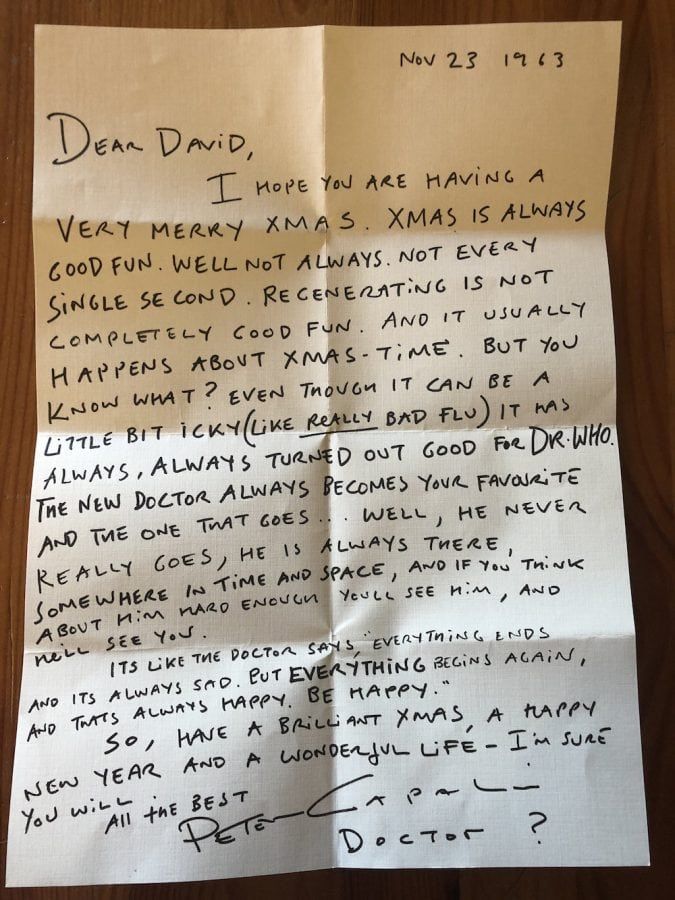 Nov 23 1963
DEAR DAVID,
I HOPE YOU ARE HAVING A
VERY MERRY XMAS. XMAS IS ALWAYS
GOOD FUN. WELL NOT ALWAYS. NOT EVERY
SINGLE SECOND. REGENERATING IS NOT
COMPLETELY GOOD FUN. AND IT USUALLY
HAPPENS ABOUT XMAS-TIME. BUT YOU
KNOW WHAT? EVEN THOUGH IT CAN BE A
LITTLE BIT ICKY (LIKE REALLY BAD FLU) IT HAS
ALWAYS, ALWAYS TURNED OUT GOOD FOR DR. WHO.
THE NEW DOCTOR ALWAYS BECOMES YOUR FAVOURITE
AND THE ONE THAT GOES... WELL, HE NEVER
REALLY GOES, HE IS ALWAYS THERE,
SOMEWHERE IN TIME AND SPACE, AND IF YOU THINK
ABOUT HIM HARD ENOUGH YOULL SEE HIM, AND
HE'LL SEE YOU.
ITS LIKE THE DOCTOR SAYS, "EVERYTHING ENDS
AND ITS ALWAYS SAD. BUT EVERYTHING BEGINS AGAIN,
AND THATS ALWAYS HAPPY. BE HAPPY."
SO, HAVE A BRILLIANT XMAS, A HAPPY
NEW YEAR AND A WONDERFUL LIFE - I'M SURE
YOU WILL.
All the BEST
PETER CAPALDI
DOCTOR ?